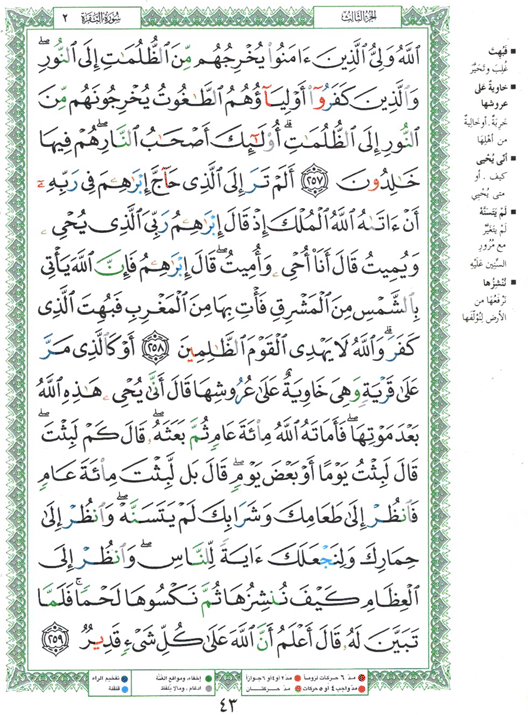 الجزء الثالث
سورة البقرة ٢
اللَّهُ وَلِيُّ الَّذِينَ ءَامَنُوا يُخْرِجُهُم مِّنَ الظُّلُمَاتِ إِلَى النُّورِ
وَالَّذِينَ كَفَرُوا أَوْلِيَاؤُهُمُ الطَّاغُوتُ يُخْرِجُونَهُم مِّنَ
النُّورِ إِلَى الظُّلُمَاتِ أُوْلَٰئِكَ أَصْحَابُ النَّارِ هُمْ فِيهَا
خَالِدُونَ ٢٥٧ أَلَمْ تَرَ إِلَى الَّذِي حَاجَّ إِبْرَاهِمَ فِي رَبِّهِ
أَنْ ءَاتَاهُ اللَّهُ الْمُلْكَ إِذْ قَالَ إِبْرَاهِمُ رَبِّيَ الَّذِي يُحْيِ
وَيُمِيتُ قَالَ أَنَا أُحْيِ وَأُمِيتُ قَالَ إِبْرَاهِمُ فَإِنَّ اللَّهَ يَأْتِي
بِالشَّمْسِ مِنَ الْمَشْرِقِ فَأْتِ بِهَا مِنَ الْمَغْرِبِ فَبُهِتَ الَّذِي
كَفَرَ وَاللَّهُ لَا يَهْدِي الْقَوْمَ الظَّالِمِينَ ٢٥٨ أَوْ كَالَّذِي مَرَّ
عَلَى قَرْيَةٍ وَهِيَ خَاوِيَةٌ عَلَى عُرُوشِهَا قَالَ أَنَّى يُحْيِ هَٰذِهِ اللَّهُ
بَعْدَ مَوْتِهَا فَأَمَاتَهُ اللَّهُ مِائَةَ عَامٍ ثُمَّ بَعَثَهُ قَالَ كَمْ لَبِثْتَ
قَالَ لَبِثْتُ يَوْمًا أَوْ بَعْضَ يَوْمٍ قَالَ بَل لَّبِثْتَ مِائَةَ عَامٍ
فَانظُرْ إِلَى طَعَامِكَ وَشَرَابِكَ لَمْ يَتَسَنَّهْ وَانظُرْ إِلَى
حِمَارِكَ وَلِنَجْعَلَكَ ءَايَةً لِّلنَّاسِ وَانظُرْ إِلَى
الْعِظَامِ كَيْفَ نُنشِزُهَا ثُمَّ نَكْسُوهَا لَحْمًا فَلَمَّا
تَبَيَّنَ لَهُ قَالَ أَعْلَمُ أَنَّ اللَّهَ عَلَى كُلِّ شَيْءٍ قَدِيرٌ ٢٥٩
فَبُهِتَ
غُلِبَ وتَحَيَّرَ
خاوِيةٌ عَلى
عروشها
خَرِبَةٌ. أو خالِيةٌ
من أهْلِهَا
أنّى يُحْيي
كيف. أو
متى يُحْيِي
لَمْ يَتَسَنَّهْ
لَمْ يَتَغَيَّرْ
مع مُرُورِ
السِّنين عَلَيْهِ
نُنْشِزُها
نَرْفَعُهَا من
الأرضِ لِنُؤَلِّفَهَا
مدّ ٦ حركات لزوماً
مدّ ٢ أو ٤ أو ٦ جوازاً
إخفاء، ومواقع الغنّة
تفخيم الراء
مدّ واجب ٤ أو ٥ حركات
مدّ حركتان
إدغام، وما لا يلفظ
قلقلة
٤٣